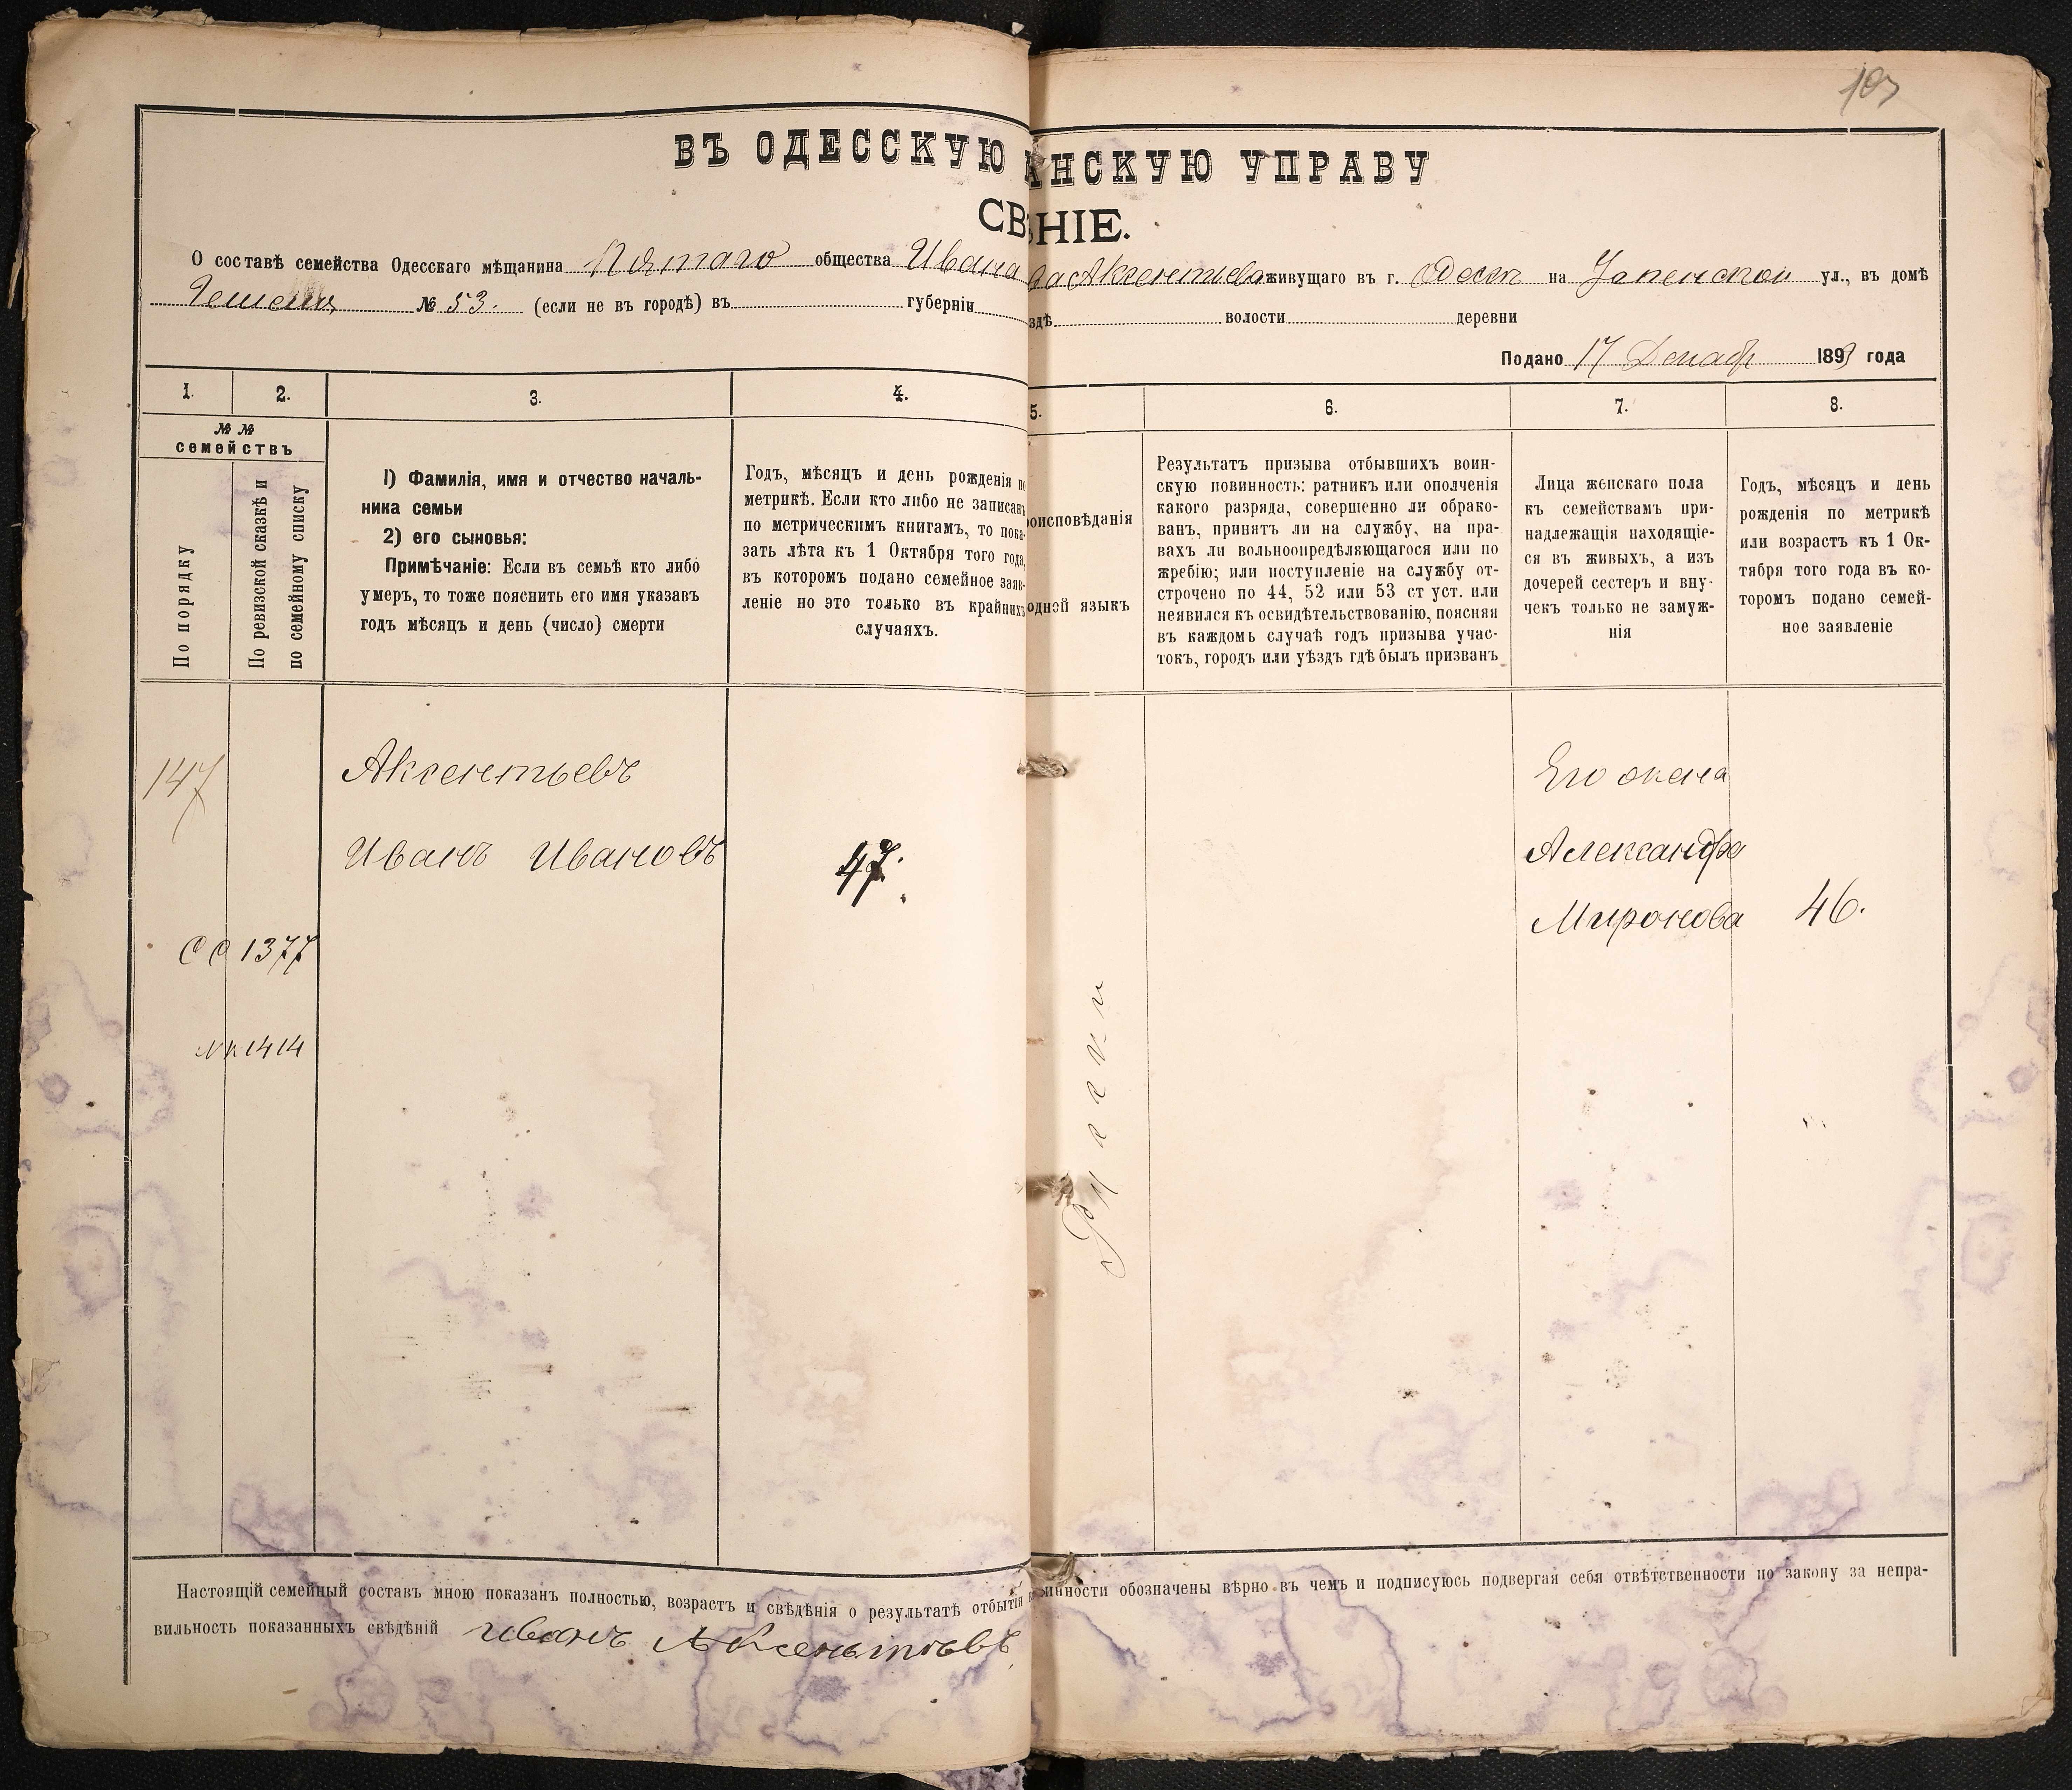 107
ВЪ ОДЕССКУЮ АНСКУЮ УПРАВУ
СВ НІЕ.
О составѣ семейства Одесскаго мѣщанина Пятаго общества Ивана Аксентьева живущаго въ г. Одессѣ на Успенской ул., въ домѣ
№ 53. (если не въ городѣ) въ губерніи здѣ волости деревни
Подано 17 Декаб 1893 года
1. 2. 3. 4. 5. 6. 7. 8.
№ №
семействъ
По порядку
По ревизской сказкѣ и
по семейному списку
1) Фамилія, имя и отчество началь-
ника семьи
2) его сыновья:
Примѣчаніе: Если въ семьѣ кто либо
умеръ, то тоже пояснить его имя указавъ
годъ мѣсяцъ и день (число) смерти
Годъ, мѣсяцъ и день рожденія по
метрикѣ. Если кто либо не записанъ
по метрическимъ книгамъ, то пока-
зать лѣта къ 1 Октября того года,
въ которомъ подано семейное заяв-
леніе но это только въ крайнихъ
случаяхъ.
роисповѣданія
одной языкъ
Результатъ призыва отбывшихъ воин-
скую повинность: ратникъ или ополченія
какого разряда, совершенно ли обрако-
ванъ, принятъ ли на службу, на пра-
вахъ ли вольноопредѣляющагося или по
жребію; или поступленіе на службу от-
строчено по 44, 52 или 53 ст уст. или
неявился къ освидѣтельствованію, поясняя
въ каждомъ случаѣ годъ призыва учас-
токъ, городъ или уѣздъ гдѣ былъ призванъ
Лица женскаго пола
къ семействамъ при-
надлежащія находящіе-
ся въ живыхъ, а изъ
дочерей сестеръ и вну-
чекъ только не замуж-
нія
Годъ, мѣсяцъ и день
рожденія по метрикѣ
или возрастъ къ 1 Ок-
тября того года въ ко-
торомъ подано семей-
ное заявленіе
147
Аксентьевъ
Иванъ Ивановъ
47.
Его жена
Александра
Миронова
46.
СС 1377
1414
Настоящій семейный составъ мною показанъ полностью, возрастъ и свѣдѣнія о результатѣ отбытія винности обозначены вѣрно въ чемъ и подписуюсь подвергая себя отвѣтственности по закону за непра-
вильность показанныхъ свѣдѣній Иванъ Аксентьевъ